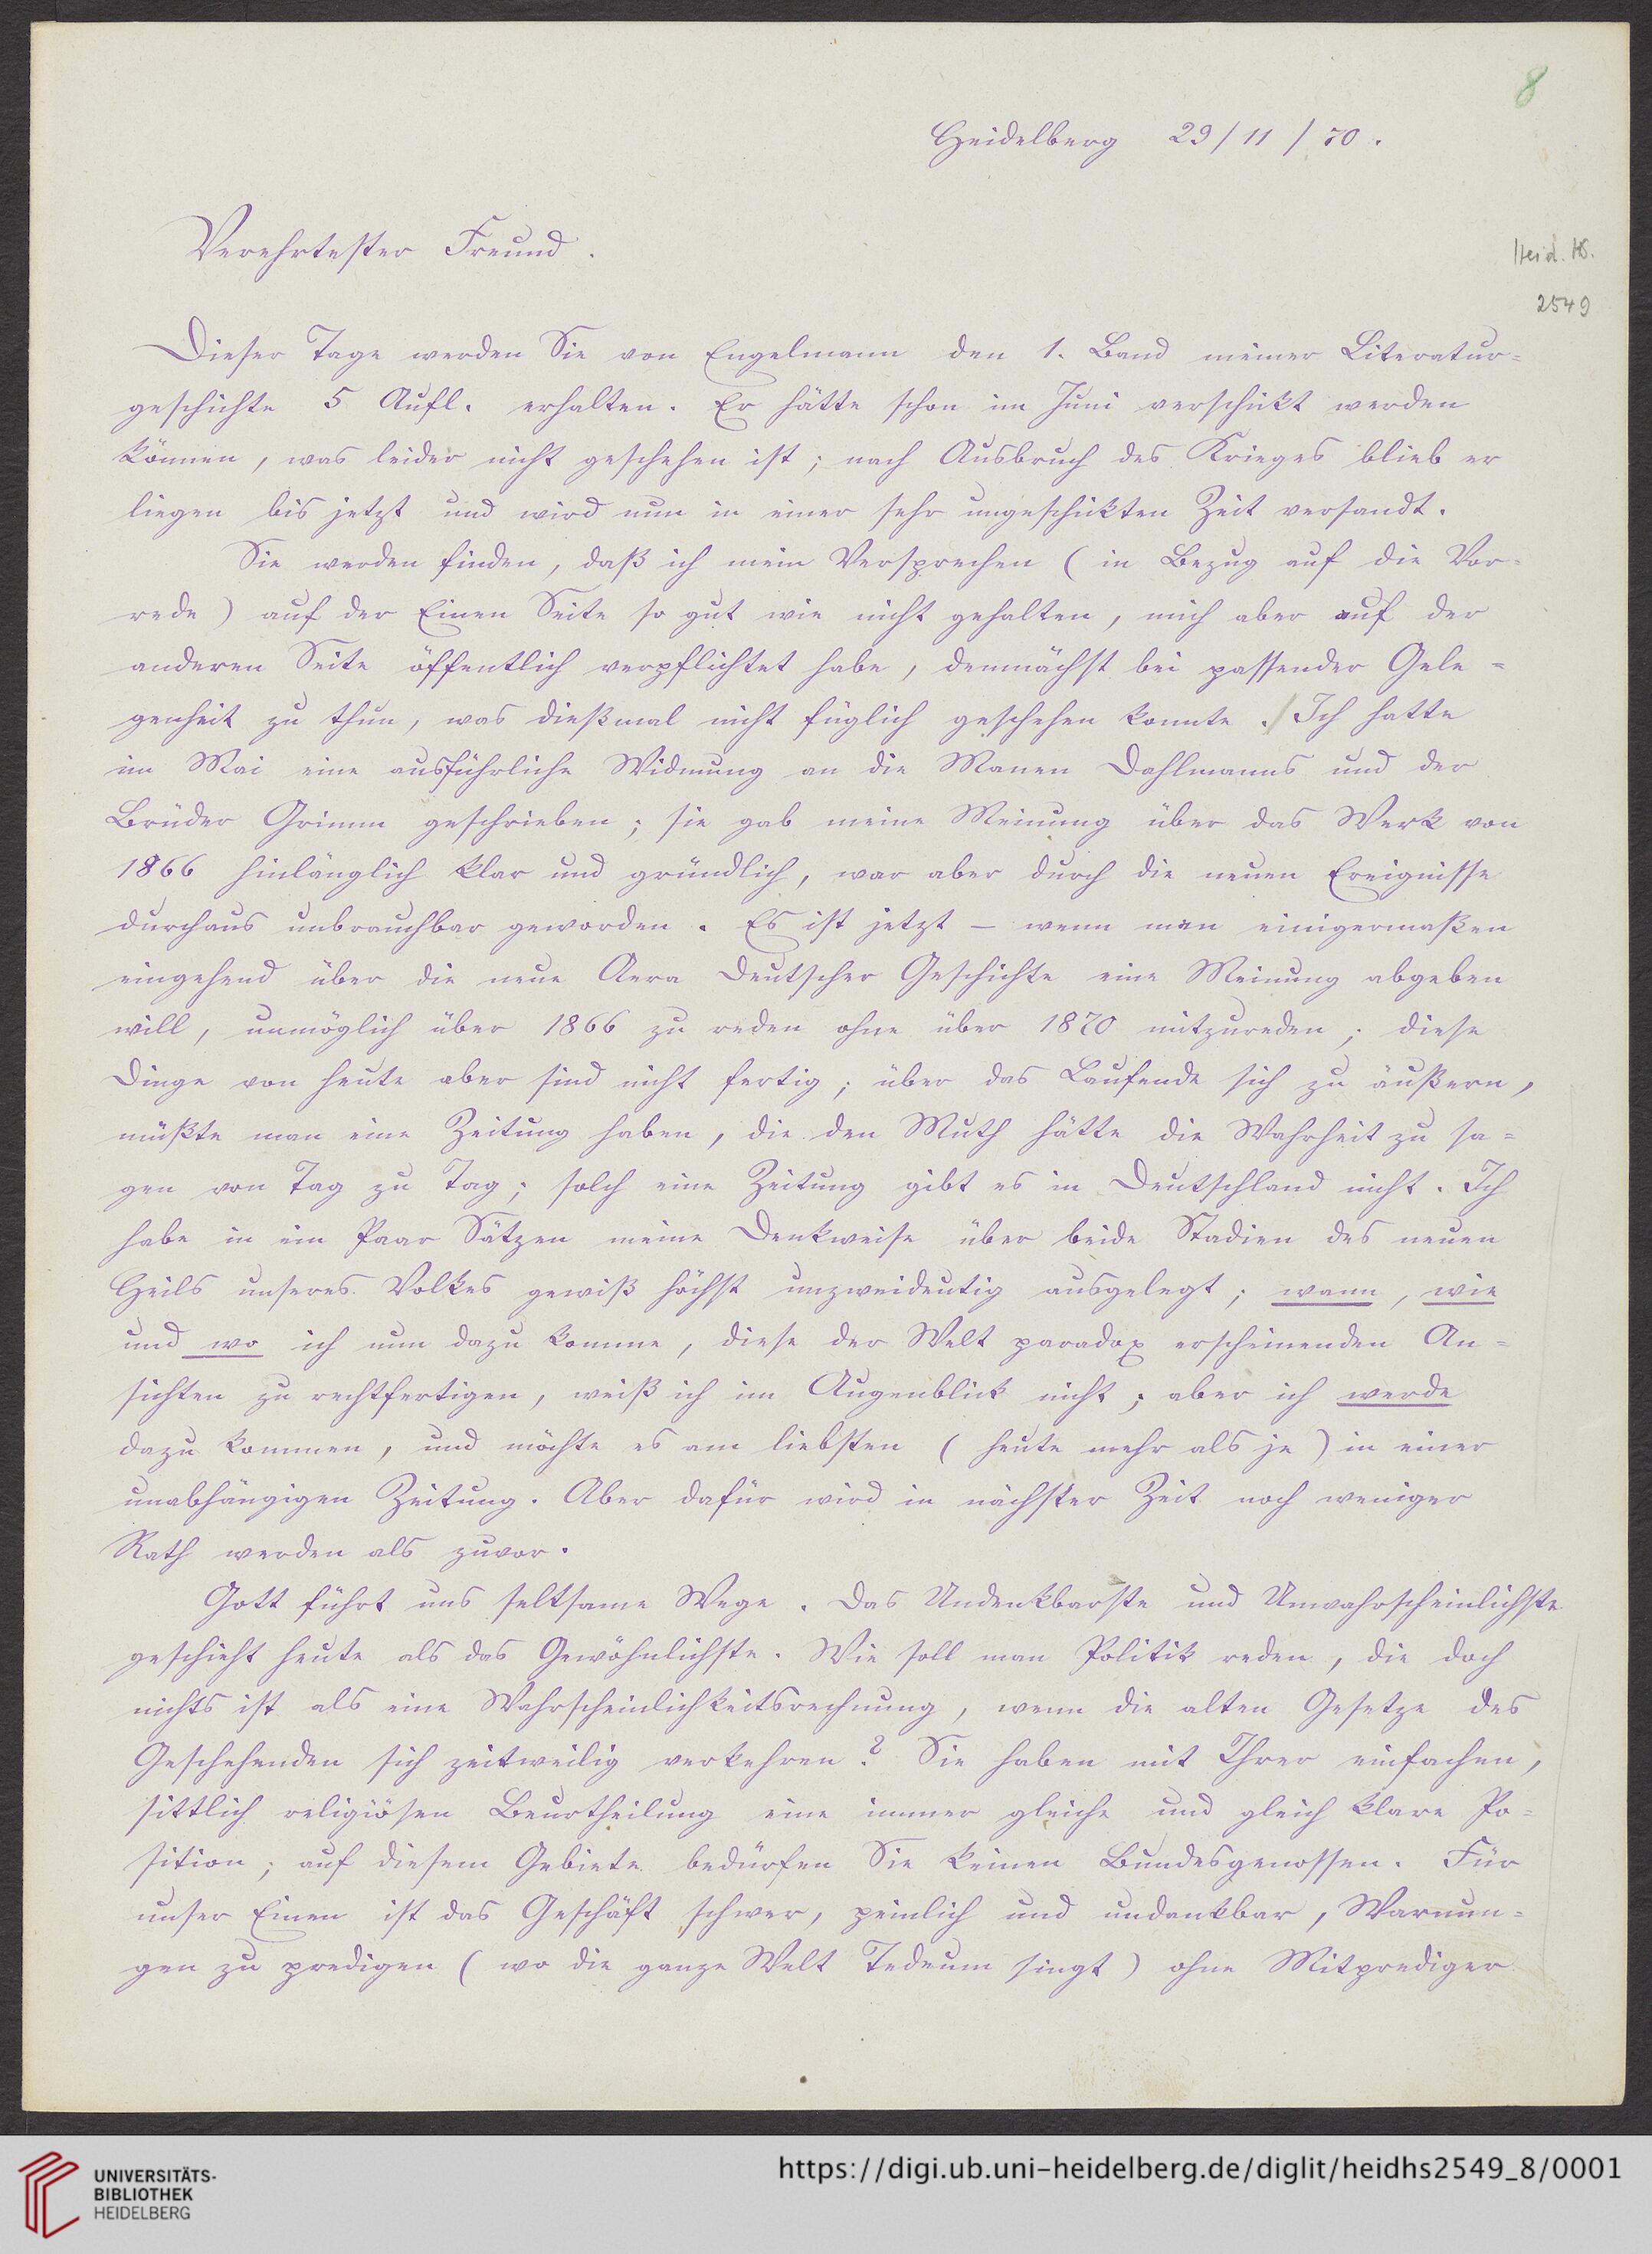 8
Heidelberg 29/11/70.
Verehrtester Freund.
Heid. Hs.
2549
Dieser Tage werden Sie von Engelmann den 1. Band meiner Literatur=
geschichte 5 Aufl. erhalten. Er hätte schon im Juni verschikt werden
können, was leider nicht geschehen ist; nach Ausbruch des Krieges blieb er
liegen bis jetzt und wird nun in einer sehr ungeschikten Zeit versandt.
Sie werden finden, daß ich mein Versprechen (in Bezug auf die Vor=
rede) auf der Einen Seite so gut wie nicht gehalten, mich aber auf der
anderen Seite öffentlich verpflichtet habe, demnächst bei passender Gele=
genheit zu thun, was dießmal nicht füglich geschehen konnte./ Ich hatte
im Mai eine ausführliche Widmung an die Manen Dahlmanns und der
Brüder Grimm geschrieben; sie gab meine Meinung über das Werk von
1866 hinlänglich klar und gründlich, war aber durch die neuen Ereignisse
durchaus unbrauchbar geworden. Es ist jetzt – wenn man einigermaßen
eingehend über die neue Aera Deutscher Geschichte eine Meinung abgeben
will, unmöglich über 1866 zu reden ohne über 1870 mitzureden; diese
Dinge von heute aber sind nicht fertig; über das Laufende sich zu äußern,
müßte man eine Zeitung haben, die den Muth hätte die Wahrheit zu sa=
gen von Tag zu Tag; solch eine Zeitung gibt es in Deutschland nicht. Ich
habe in ein Paar Sätzen meine Denkweise über beide Stadien des neuen
Heils unseres Volkes gewiß höchst unzweideutig ausgelegt; wann, wie
und wo ich nun dazu komme, diese der Welt paradox erscheinenden An=
sichten zu rechtfertigen, weiß ich im Augenblick nicht; aber ich werde
dazu kommen, und möchte es am liebsten (heute mehr als je) in einer
unabhängigen Zeitung. Aber dafür wird in nächster Zeit noch weniger
Rath werden als zuvor.
Gott führt uns seltsame Wege. Das Undenkbarste und Unwahrscheinlichste
geschieht heute als das Gewöhnlichste. Wie soll man Politik reden, die doch
nichts ist als eine Wahrscheinlichkeitsrechnung, wenn die alten Gesetze des
Geschehenden sich zeitweilig verkehren? Sie haben mit Ihrer einfachen,
sittlich religiösen Beurtheilung eine immer gleiche und gleich klare Po=
sition; auf diesem Gebiete bedürfen Sie keinen Bundesgenossen. Für
unser Einen ist das Geschäft schwer, peinlich und undankbar, Warnun=
gen zu predigen (wo die ganze Welt Tedeum singt) ohne Mitprediger
UNIVERSITÄTS-
BIBLIOTHEK
HEIDELBERG
https://digi.ub.uni-heidelberg.de/diglit/heidhs2549_8/0001